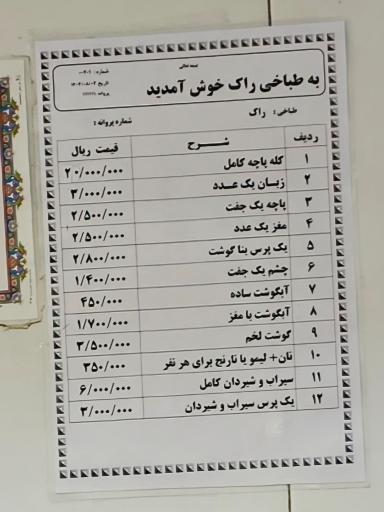 بسمه تعالی
به طباخی راک خوش آمدید
شماره: ۲۰۱-
تاریخ ۱۴۰۳/۰۸/۰۲
طباخی : راک
شماره پروانه :
ردیف شــــرح قیمت ریال
۱ کله پاچه کامل ۲۰/۰۰۰/۰۰۰
۲ زبـان یک عـدد ۳/۰۰۰/۰۰۰
۳ پاچه یک جفت ۲/۵۰۰/۰۰۰
۴ مغز یک عدد ۲/۵۰۰/۰۰۰
۵ یک پرس بنا گوشت ۲/۸۰۰/۰۰۰
۶ چشم یک جفت ۱/۴۰۰/۰۰۰
۷ آبگوشت ساده ۴۵۰/۰۰۰
۸ آبگوشت با مغز ۱/۷۰۰/۰۰۰
۹ گوشت لخم ۳/۵۰۰/۰۰۰
۱۰ نان+ لیمو یا نارنج برای هر نفر ۳۵۰/۰۰۰
۱۱ سیراب و شیردان کامل ۶/۰۰۰/۰۰۰
۱۲ یک پرس سیراب و شیردان ۳/۰۰۰/۰۰۰